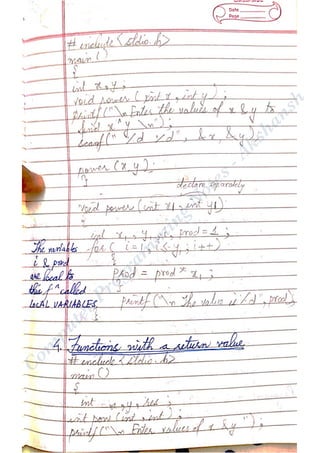 Date
Page
# include <stdio.h>
main ()
{
int x, y ;
void power (int x, int y) ;
printf ("\n Enter the values of x & y to
find x^y \n") ;
scanf (" %d %d", &x, &y) ;
power (x, y) ;
}
declare separately
void power (int x1, int y1)
{
int prod = 1 ;
for ( i = 1 ; i ≤ y, ; i++)
{
prod = prod * x1 ;
}
printf ("\n The value is %d", prod);
}
The variables
i & prod
are local to
this fn called
LOCAL VARIABLES
4. Functions with a return value
# include <stdio.h>
main ()
{
int x, y, res ;
int pow (int, int) ;
printf ("\n Enter values of x & y ") ;
Computer Programming Notes - Akshansh